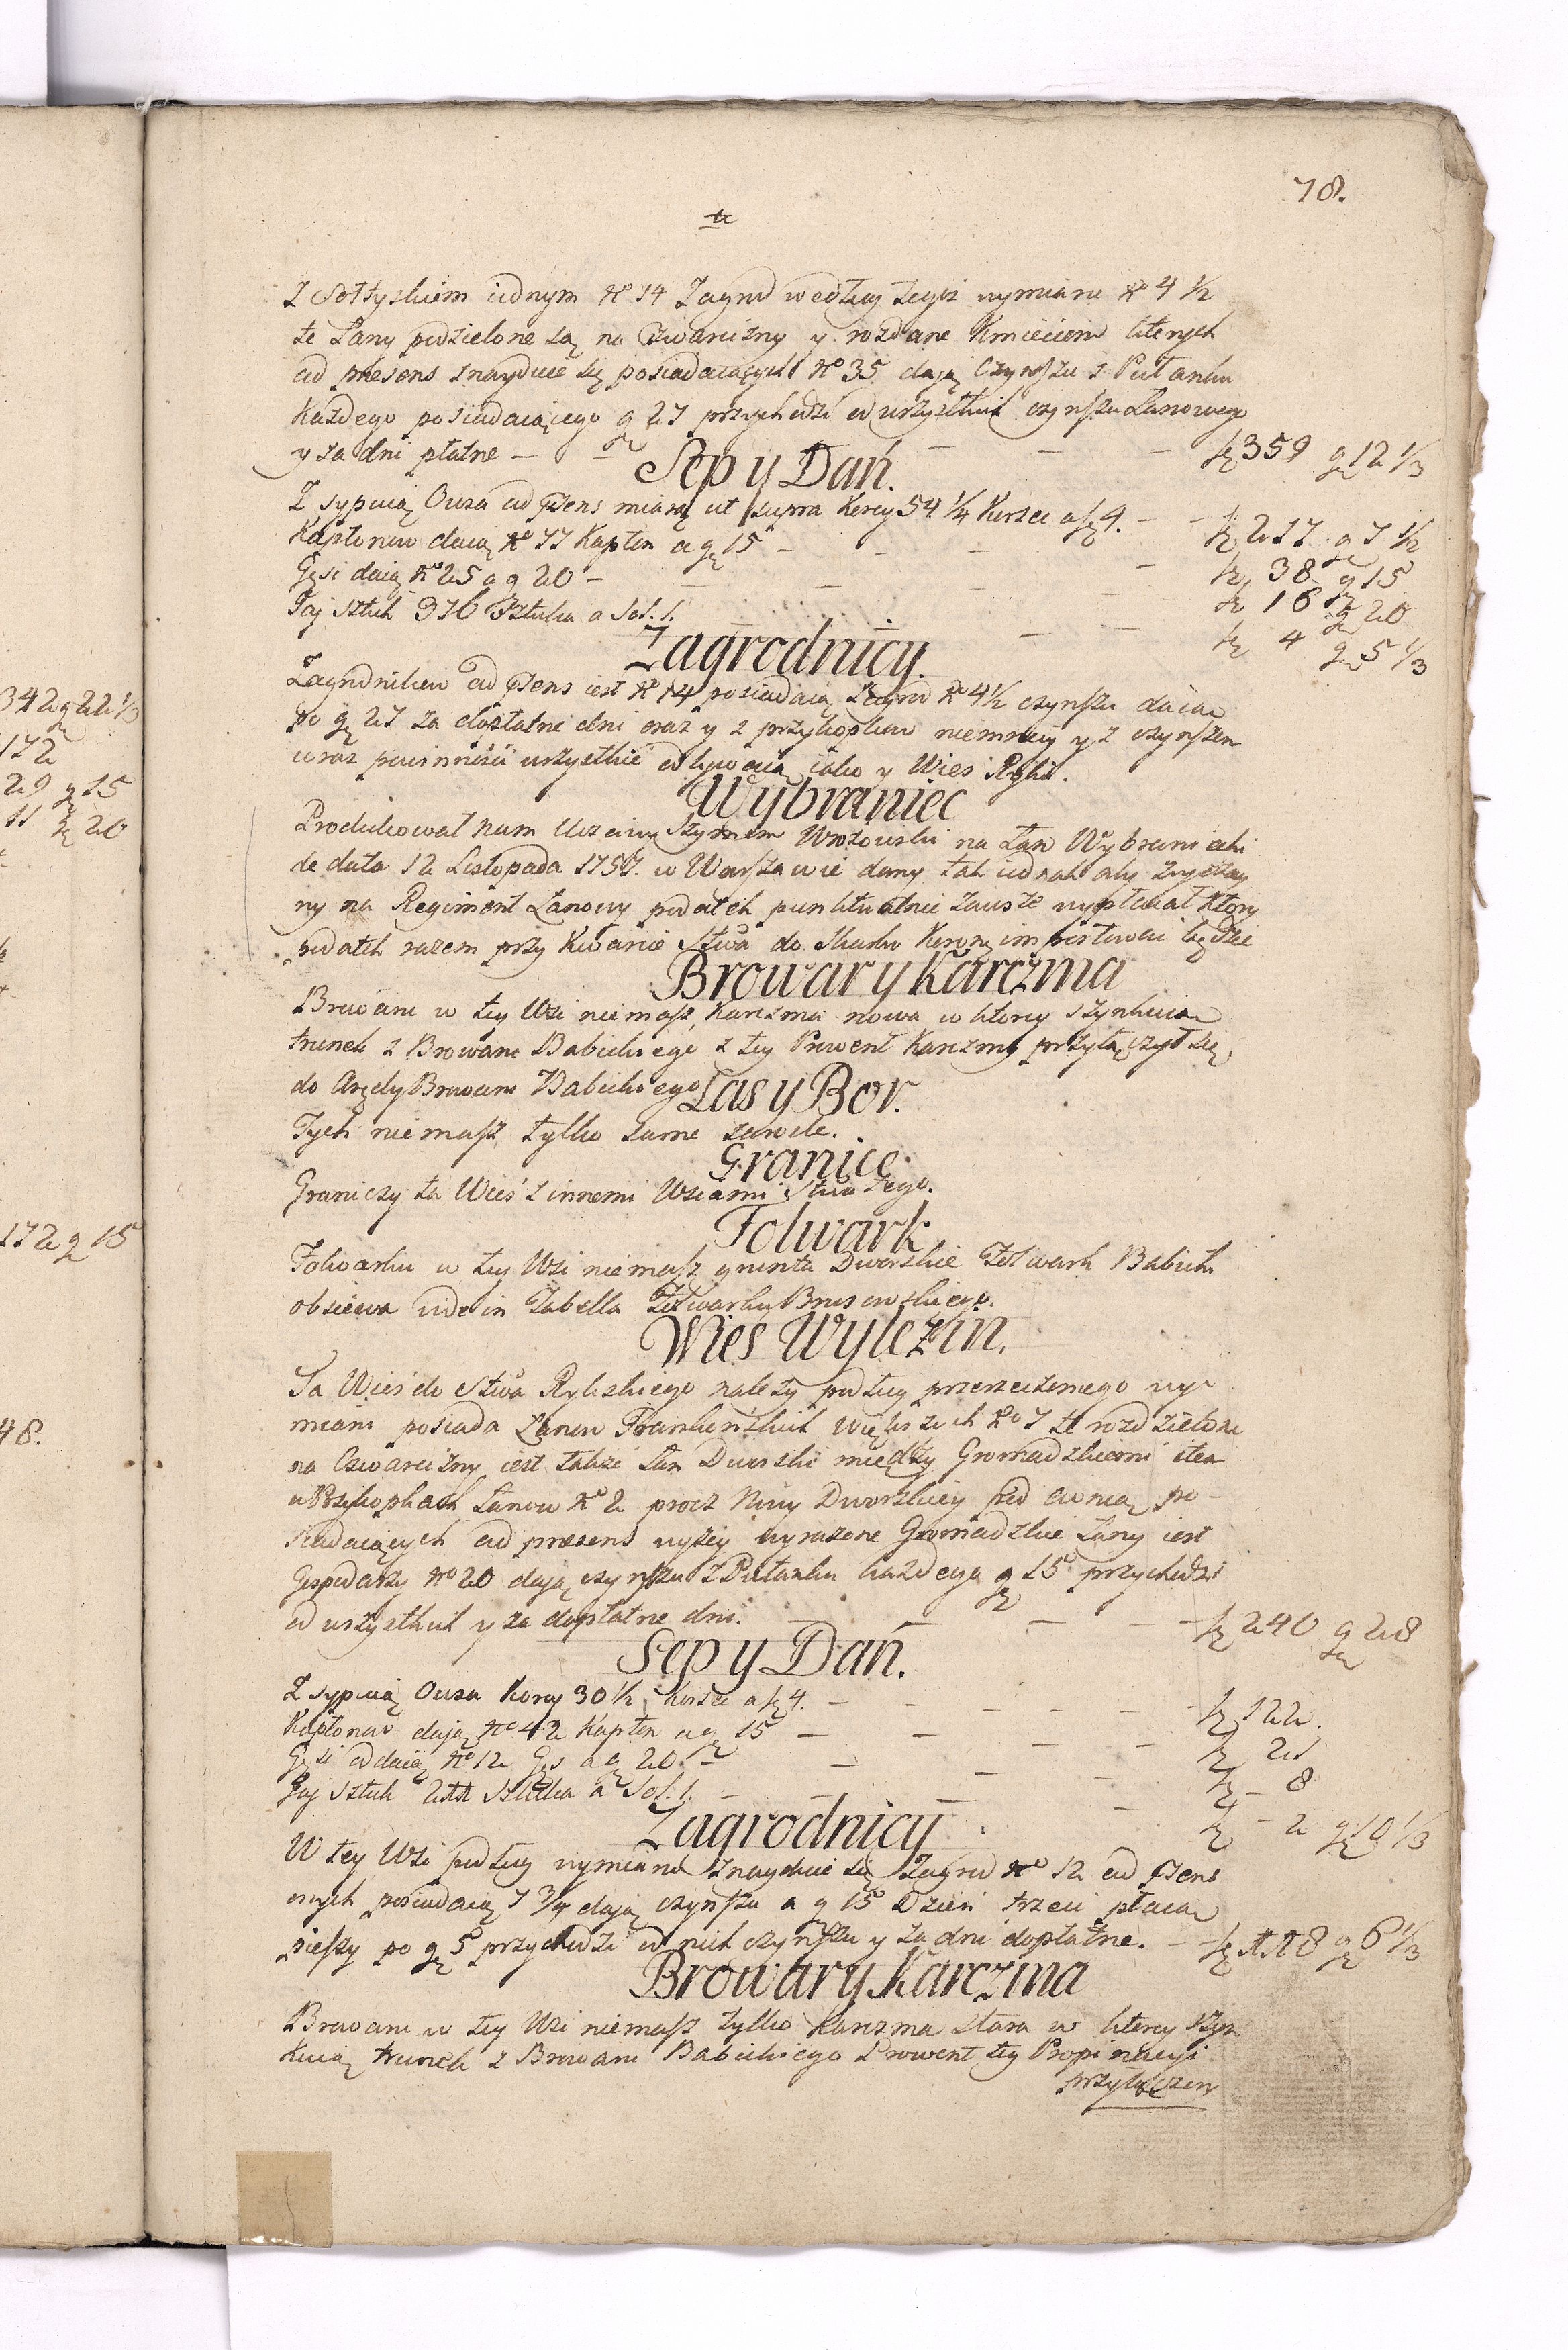 78.
Z Sołtyskiem iednym No 14 Zagrod według tegoż wymiaru No 4 1/2
te Łany podzielone są na Cwiercizny y rozdane Kmieciom ktorych
ad presens znayduie się posiadaiących No 35 daią Czynszu z Pułanku
Każdego posiadaiącego g 27 przychodzi od wszystkich czynszu Łanowego
y za dni płatne — fz 359 g 12 1/3
Sep y Dań.
Zsypuią Owsa ad Psens miarą ut supra Korcy 54 1/4 Korzec a fz 4. — fz 217 g 7 1/2
Kapłonow daią No 77 Kapłon a g 15 — fz 38 g 15
Gęsi daią No 25 a g 20 — fz 16 g 20
Jaj sztuk 376 Sztuka a Sol. 1. — fz 4 g 5 1/3
Zagrodnicy.
Zagrodnikow ad Psens iest No 14 posiadaią Zagrod No 4 1/2 czynszu daią
po g 27 za dostatne dni oraz y z przykopkow niemniey y z czynszem
oraz powinności wszystkie odbywaią iako y Wieś Ryki.
Wybraniec
Produkował nam Uczciwy Szymon na Łan Wybraniecki
de data 12 Listopada 1757. w Warszawie dany tak iednak aby
ny na Regiment Łanowy podatek punktualnie zawsze wypłacał ktory
podatek razem przy Kwarcie Stwa do Skarbu Koronnego będzie
Browar y Karczma
Browaru w tey Wsi niemasz, Karczma nowa w ktorey szynkuią
trunek z Browaru Babickiego z tey Prowent Karczmy przyłączył się
do Arędy Browaru Babickiego
Las y Bor.
Tych niemasz tylko same zarośle.
Granice.
Graniczy ta Wieś z innemi Wsiami Stwa tego.
Folwark
Folwarku w tey Wsi niemasz grunta Dworskie Folwark Babicki
obsiewa vide in Tabella Folwarku Brusowskiego.
Wies Wylezin.
Ta Wieś do Stwa Ryckiego należy podług przerzeczonego wy-
miaru posiada Łanow Frankońskich większych No 7 te rozdzielone
na Czwarcizny iest także Łan Dworski między Gromadzkiemi item
w Przykopkach Łanow No 2 procz Niwy Dworskiey pod Cwnią po-
siadaiących ad presens wyżey wyrażone Gromadzkie Łany iest
Gospodarzy No 20 daią czynszu z Pułanku każdego g 15 przychodzi
od wszystkich y za dopłatne dni. — fz 240 g 28
Sep y Dań.
Zsypuią Owsa Korcy 30 1/2 Korzec a fz 4. — fz 122.
Kapłonow daią No 42 Kapłon a g 15 — fz 21
Gęsi oddaią No 12 Gęś a g 20. — fz 8
Jaj sztuk 211 sztuka a Sol. 1. — fz 2 g 10 1/3
Zagrodnicy
W tey Wsi podług wymiaru znayduie się Zagrod No 12 ad Psens
onych posiadaią 7 3/4 daią czynszu a g 15 Dzień trzeci płacą
pieszy po g 5 przychodzi od nich czynszu y za dni dopłatne. — fz 118 g 6 1/3
Browar y Karczma
Browaru w tey Wsi niemasz tylko Karczma stara w ktorey szyn
kuią trunek z Browaru Babickiego Prowent tey Propinacyi
przyłączon
342 g 22 1/3
172
29 g 15
11 g 20
172 g 15
48.